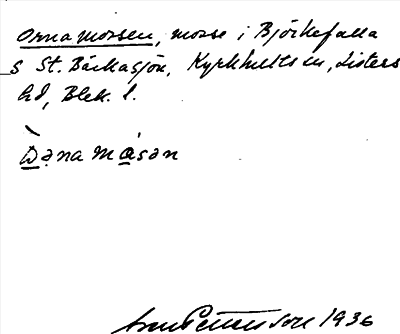 Ornamossen, mosse i Björkefalla
S St. Bäckasjön, Kyrkhults sn, Listers
hd, Blek. l.
Ɯənamåsən
Pettersson 1936